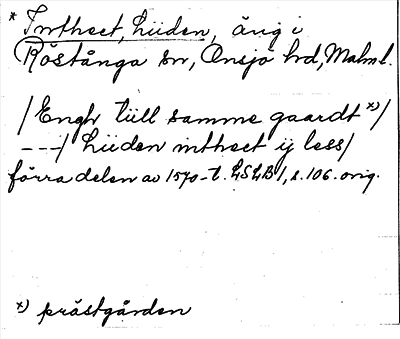 * Intheet, Liiden, äng i
Röstånga sn, Onsjö hd, Malm l.
/Engh tiill samme gaardt x)/
---/ Liiden intheet ij less/
förra delen av 1570-t. LSLB I, s. 106. orig.
x) prästgården